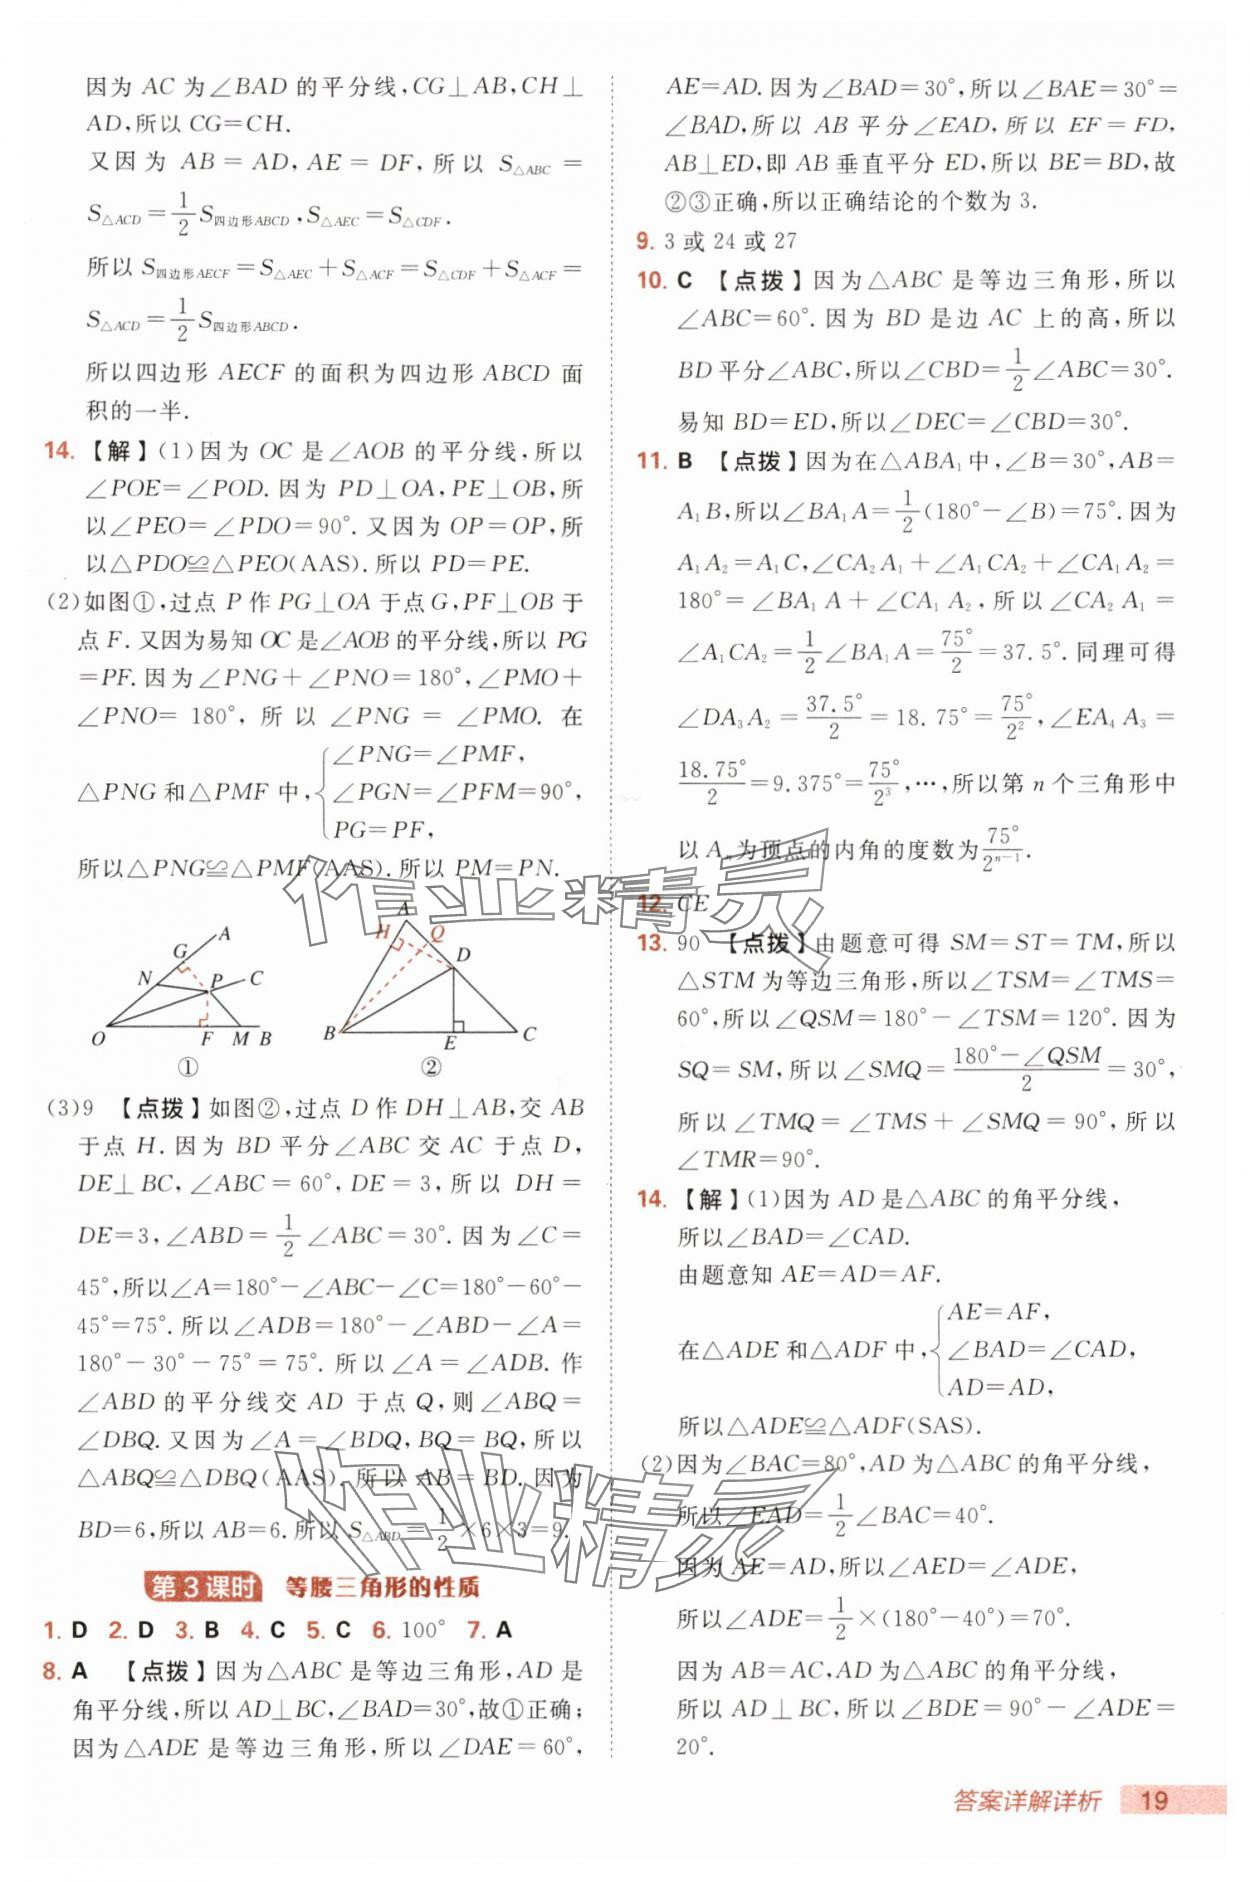 因为 AC 为∠BAD 的平分线,CG⊥AB,CH⊥
AD,所以 CG=CH.
又因为 AB = AD, AE = DF, 所以 S△ABC =
S△ACD=1/2S四边形ABCD,S△AEC=S△CDF.
所以 S四边形AECF=S△AEC+S△ACF=S△CDF+S△ACF=
S△ACD=1/2S四边形ABCD.
所以四边形 AECF 的面积为四边形 ABCD 面
积的一半.
14.【解】(1)因为 OC 是∠AOB 的平分线,所以
∠POE=∠POD. 因为 PD⊥OA,PE⊥OB,所
以∠PEO=∠PDO=90°. 又因为 OP=OP,所
以△PDO≌△PEO(AAS).所以 PD=PE.
(2)如图①,过点 P 作 PG⊥OA 于点G,PF⊥OB 于
点 F. 又因为易知 OC 是∠AOB 的平分线,所以 PG
=PF. 因为∠PNG+∠PNO=180°,∠PMO+
∠PNO= 180°, 所以 ∠PNG = ∠PMO. 在
△PNG 和△PMF 中,{∠PNG=∠PMF,
∠PGN=∠PFM=90°,
PG=PF,
所以△PNG≌△PMF(AAS).所以 PM=PN.
A
G
N
P
C
O
F
M
B
①
A
H
Q
D
B
E
C
②
(3)9 【点拨】如图②,过点 D 作 DH⊥AB,交 AB
于点 H. 因为 BD 平分∠ABC 交 AC 于点 D,
DE⊥BC,∠ABC=60°,DE=3,所以 DH=
DE=3,∠ABD=1/2∠ABC=30°. 因为∠C=
45°,所以∠A=180°-∠ABC-∠C=180°-60°-
45°=75°. 所以∠ADB=180°-∠ABD-∠A=
180°-30°-75°=75°. 所以∠A=∠ADB. 作
∠ABD 的平分线交 AD 于点 Q,则∠ABQ=
∠DBQ. 又因为∠A=∠BDQ,BQ=BQ,所以
△ABQ≌△DBQ(AAS).所以 AB=BD. 因为
BD=6,所以 AB=6. 所以 S△ABD=1/2×6×3=9.
第3课时 等腰三角形的性质
1. D 2. D 3. B 4. C 5. C 6. 100° 7. A
8. A 【点拨】因为△ABC 是等边三角形,AD 是
角平分线,所以 AD⊥BC,∠BAD=30°,故①正确;
因为△ADE 是等边三角形,所以∠DAE=60°,
AE=AD. 因为∠BAD=30°,所以∠BAE=30°=
∠BAD,所以 AB 平分∠EAD,所以 EF=FD,
AB⊥ED,即 AB 垂直平分 ED,所以 BE=BD,故
②③正确,所以正确结论的个数为 3.
9. 3 或 24 或 27
10. C 【点拨】因为△ABC 是等边三角形,所以
∠ABC=60°. 因为 BD 是边 AC 上的高,所以
BD 平分∠ABC,所以∠CBD=1/2∠ABC=30°.
易知 BD=ED,所以∠DEC=∠CBD=30°.
11. B 【点拨】因为在△ABA₁中,∠B=30°,AB=
A₁B,所以∠BA₁A=1/2(180°-∠B)=75°. 因为
A₁A₂=A₁C,∠CA₂A₁+∠A₁CA₂+∠CA₁A₂=
180°=∠BA₁A+∠CA₁A₂,所以∠CA₂A₁=
∠A₁CA₂=1/2∠BA₁A=75°/2=37.5°. 同理可得
∠DA₃A₂=37.5°/2=18.75°=75°/2²,∠EA₄A₃=
18.75°/2=9.375°=75°/2³,…,所以第 n 个三角形中
以 Aₙ为顶点的内角的度数为75°/2ⁿ⁻¹.
12. CE
13. 90 【点拨】由题意可得 SM=ST=TM,所以
△STM 为等边三角形,所以∠TSM=∠TMS=
60°,所以∠QSM=180°-∠TSM=120°. 因为
SQ=SM,所以∠SMQ=(180°-∠QSM)/2=30°,
所以∠TMQ=∠TMS+∠SMQ=90°,所以
∠TMR=90°.
14.【解】(1)因为 AD 是△ABC 的角平分线,
所以∠BAD=∠CAD.
由题意知 AE=AD=AF.
在△ADE 和△ADF 中,{AE=AF,
∠BAD=∠CAD,
AD=AD,
所以△ADE≌△ADF(SAS).
(2)因为∠BAC=80°,AD 为△ABC 的角平分线,
所以∠EAD=1/2∠BAC=40°.
因为 AE=AD,所以∠AED=∠ADE,
所以∠ADE=1/2×(180°-40°)=70°.
因为 AB=AC,AD 为△ABC 的角平分线,
所以 AD⊥BC,所以∠BDE=90°-∠ADE=
20°.
答案详解详析 19
作业精灵
作业精灵